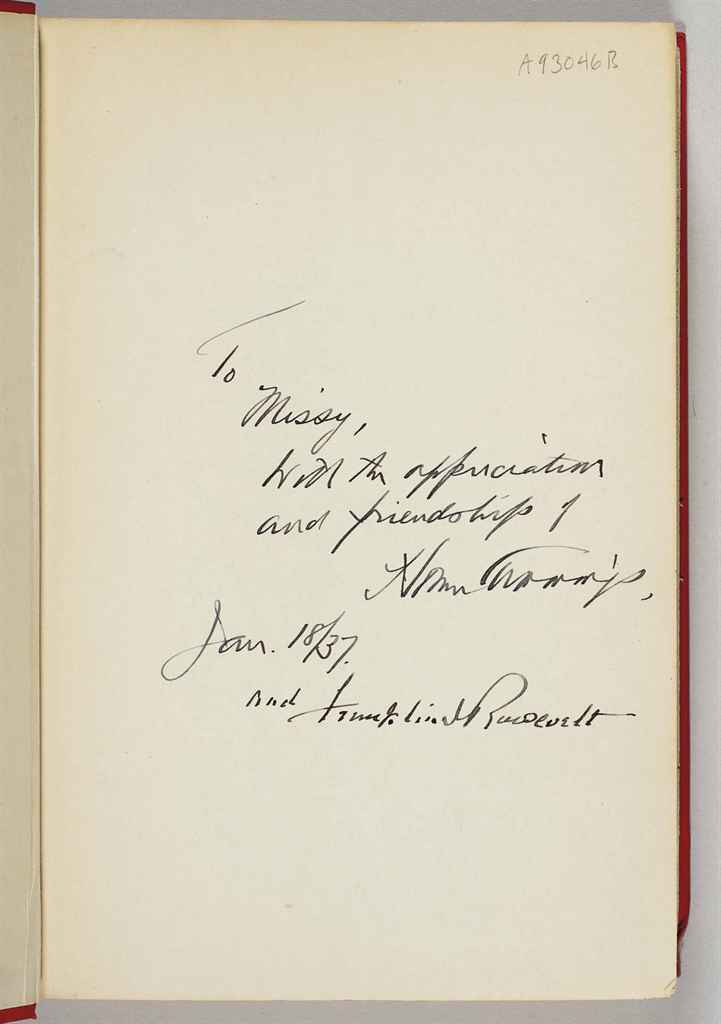 A93046B
To
Missy,
with the appreciation
and friendship of
Homer Cummings,
Jan. 18/37.
and Franklin D Roosevelt